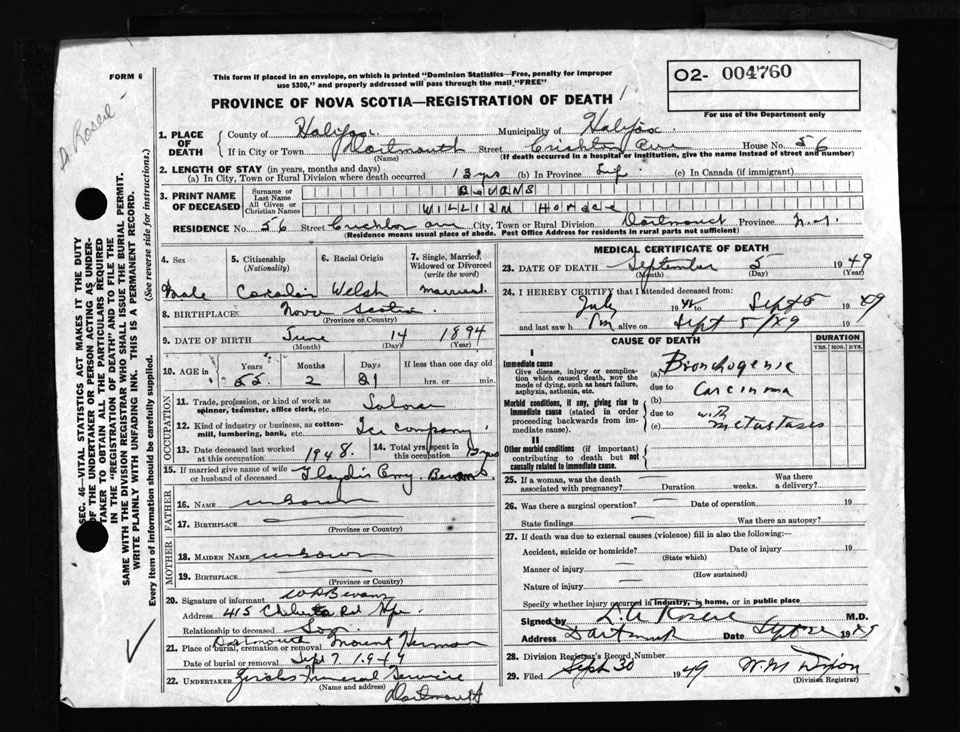 FORM 6
Dr Roscoe
This form if placed in an envelope, on which is printed "Dominion Statistics—Free, penalty for improper
use $300," and properly addressed will pass through the mail "FREE"
02- 004760
For use of the Department only
PROVINCE OF NOVA SCOTIA—REGISTRATION OF DEATH
1. PLACE OF DEATH County of Halifax Municipality of Halifax
If in City or Town Dartmouth Street Crichton Ave House No. 56
(Name) (If death occurred in a hospital or institution, give the name instead of street and number)
2. LENGTH OF STAY (in years, months and days)
(a) In City, Town or Rural Division where death occurred 13 yrs (b) In Province Life (c) In Canada (if immigrant)
3. PRINT NAME OF DECEASED Surname or Last Name BEVANS
All Given or Christian Names WILLIAM HORACE
RESIDENCE No. 56 Street Crichton ave City, Town or Rural Division Dartmouth Province N.S.
(Residence means usual place of abode. Post Office Address for residents in rural parts not sufficient)
4. Sex Male
5. Citizenship (Nationality) Canadian
6. Racial Origin Welsh
7. Single, Married, Widowed or Divorced (write the word) Married
8. BIRTHPLACE Nova Scotia
(Province or Country)
9. DATE OF BIRTH June 14 1894
(Month) (Day) (Year)
10. AGE in Years 55 Months 2 Days 21 If less than one day old hrs. or min.
OCCUPATION
11. Trade, profession, or kind of work as spinner, teamster, office clerk, etc. Laborer
12. Kind of industry or business, as cotton-mill, lumbering, bank, etc. Ice Company
13. Date deceased last worked at this occupation 1948. 14. Total yrs. spent in this occupation
15. If married give name of wife or husband of deceased Bevans
FATHER
16. Name unknown
17. BIRTHPLACE —
(Province or Country)
MOTHER
18. MAIDEN NAME unknown
19. BIRTHPLACE —
(Province or Country)
20. Signature of informant Bevans
Address 415 Chebucto Rd Hfx.
Relationship to deceased Son
21. Place of burial, cremation or removal Dartmouth Mount Hermon
Date of burial or removal Sept 7, 1949
22. UNDERTAKER Funeral Service
(Name and address) Dartmouth
MEDICAL CERTIFICATE OF DEATH
23. DATE OF DEATH September 5 1949
(Month) (Day) (Year)
24. I HEREBY CERTIFY that I attended deceased from:
July to Sept 5 1949
and last saw him alive on Sept 5/49 19
CAUSE OF DEATH
DURATION
YRS. MOS. DYS.
I
Immediate cause
Give disease, injury or complication which caused death, NOT the mode of dying, such as heart failure, asphyxia, asthenia, etc.
(a) Bronchogenic
due to Carcinoma
Morbid conditions, if any, giving rise to immediate cause (stated in order proceeding backwards from immediate cause).
(b)
due to with
(c) metastases
II
Other morbid conditions (if important) contributing to death but not causally related to immediate cause.
25. If a woman, was the death associated with pregnancy? — Duration weeks. Was there a delivery?
26. Was there a surgical operation? — Date of operation 19
State findings — Was there an autopsy?
27. If death was due to external causes (violence) fill in also the following:—
Accident, suicide or homicide? — Date of injury 19
(State which)
Manner of injury —
(How sustained)
Nature of injury —
Specify whether injury occurred in industry, in home, or in public place
Signed by Roscoe M.D.
Address Dartmouth Date
28. Division Registrar's Record Number
29. Filed Sept 30 1949 W. M. Dixon
(Division Registrar)
SEC. 46—VITAL STATISTICS ACT MAKES IT THE DUTY
OF THE UNDERTAKER OR PERSON ACTING AS UNDER-
TAKER TO OBTAIN ALL THE PARTICULARS REQUIRED
IN THE "REGISTRATION OF DEATH" AND TO FILE THE
SAME WITH THE DIVISION REGISTRAR WHO SHALL ISSUE THE BURIAL PERMIT.
WRITE PLAINLY WITH UNFADING INK. THIS IS A PERMANENT RECORD.
Every item of information should be carefully supplied. (See reverse side for instructions.)